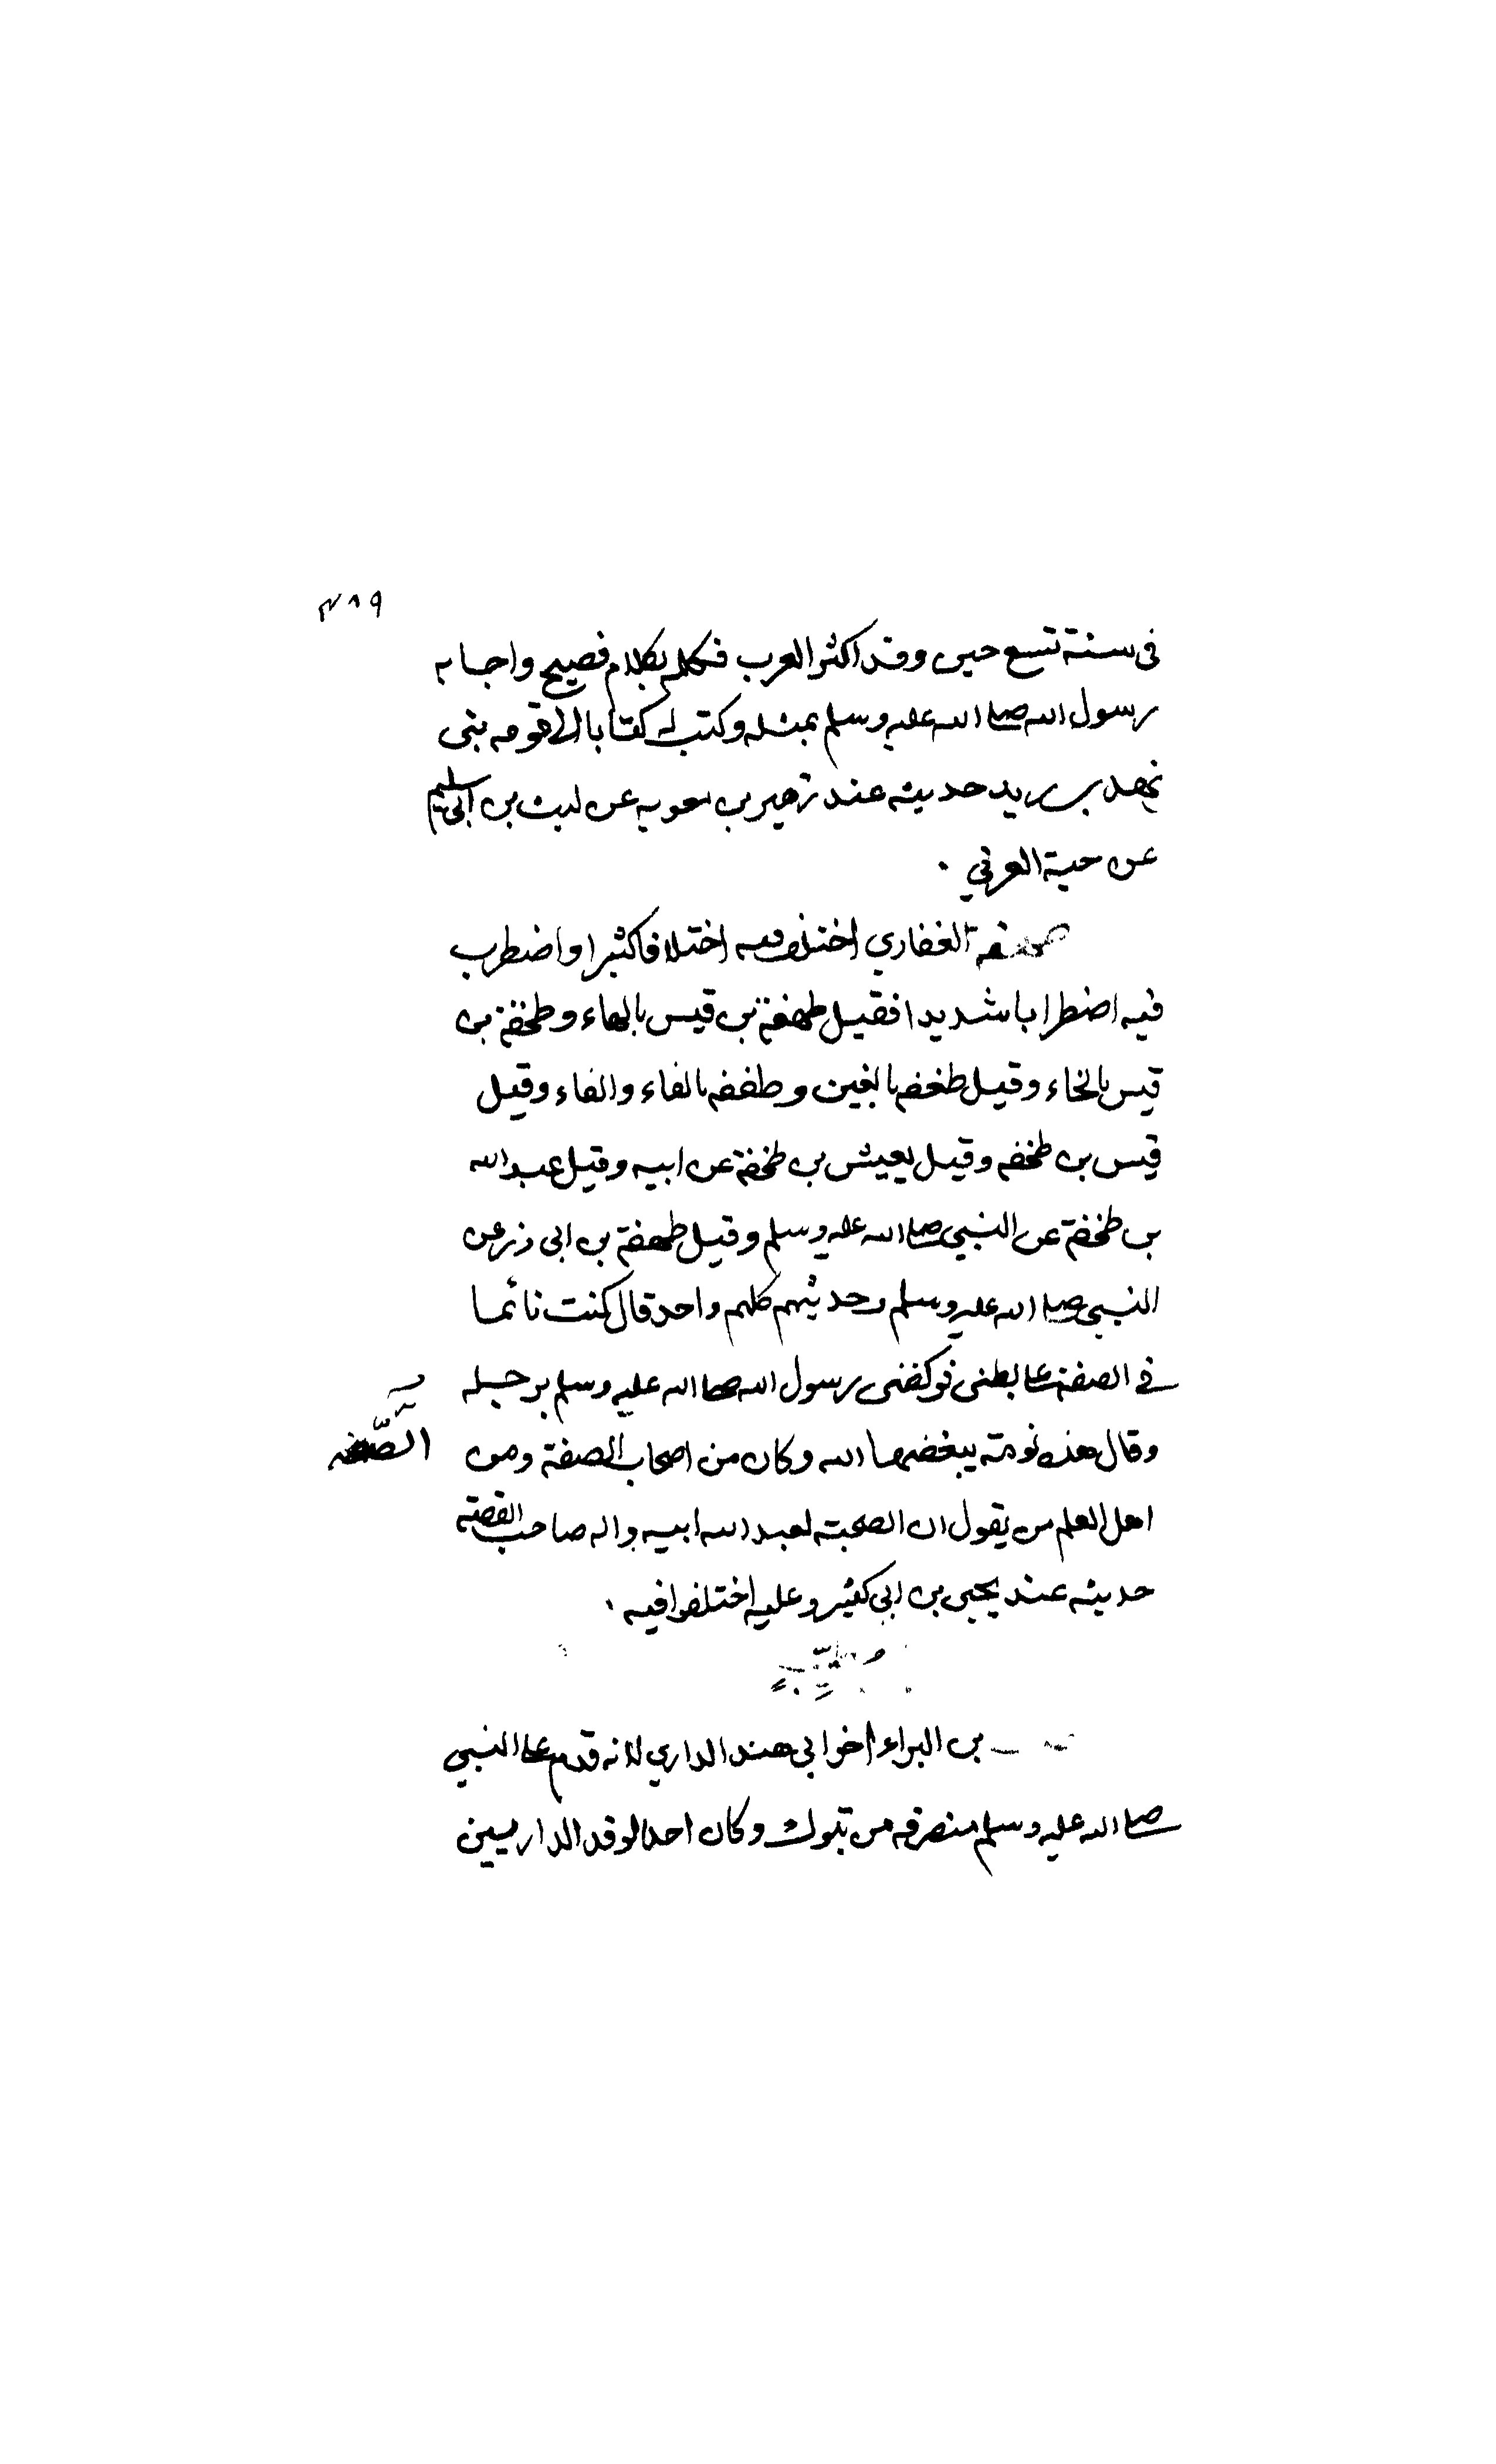 ٣٨٩
فى سنة تسع حين وفد اكثر العرب فكلم بكلام فصيح واجابه
رسول الله صلى الله عليه وسلم بمثله وكتب له كتابا الى قومه بنى
نهد بن زيد حديثه عند زهير بن معويه عن ليث بن ابى سليم
عن حبة العرني .
الغفاري اختلف فيه اختلافا كثيرا واضطرب
فيه اضطرابا شديدا فقيل طهفة بن قيس بالهاء وطخفة بن
قيس بالخاء وقيل طغفه بالغين وطقفه بالقاف والفاء وقيل
قيس بن طخفه وقيل يعيش بن طخفة عن ابيه وقيل عبد الله
بن طخفة عن النبي صلى الله عليه وسلم وقيل طهفة بن ابى ذر عن
النبي صلى الله عليه وسلم وحديثهم كلهم واحد قال كنت نائما
في الصفة على بطنى فركضنى رسول الله صلى الله عليه وسلم برجله
وقال هذه نومة يبغضها الله وكان من اصحاب الصفة ومن
الصّفه
اهل العلم من يقول ان الصحبة لعبد الله ابيه وانه صاحب القصة
حديثه عند يحيى بن ابى كثير وعليه اختلفوا فيه .
بن البراء اخو ابى هند الداري لانه قدم على النبي
صلى الله عليه وسلم منصرفه من تبوك وكان احد الوفد الداريين